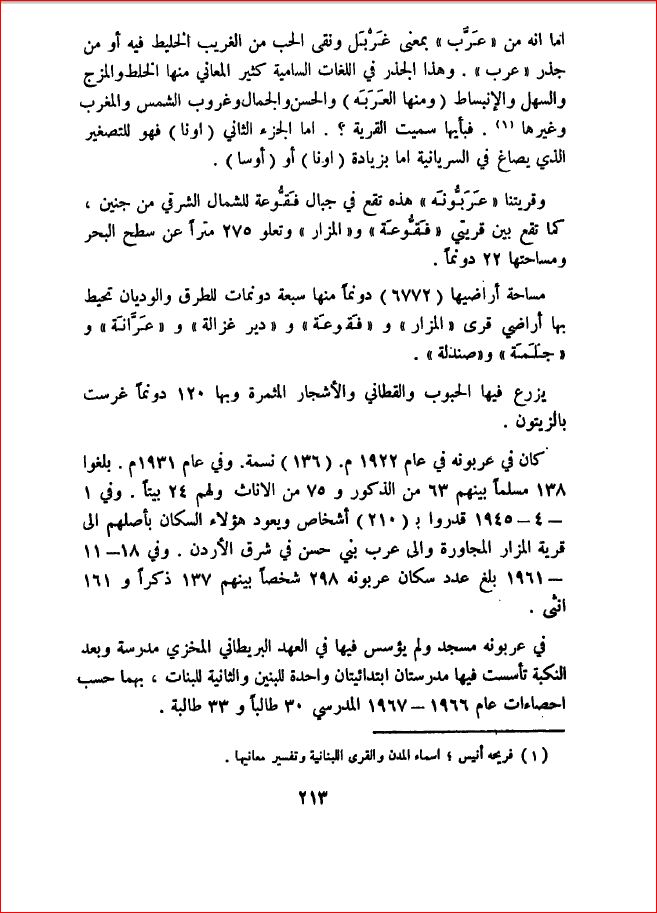 اما انه من « عَرَّب » بمعنى غَرْبُل ونقى الحب من الغريب الخليط فيه أو من
جذر « عرب » . وهذا الجذر في اللغات السامية كثير المعاني منها الخلط والمزج
والسهل والإنبساط ( ومنها العَرَبَه ) والحسن والجمال وغروب الشمس والمغرب
وغيرها (١) . فبأيها سميت القرية ؟ . اما الجزء الثاني ( اونا ) فهو للتصغير
الذي يصاغ في السريانية اما بزيادة ( اونا ) أو ( أوسا ) .
وقريتنا « عَرَبُّونَه » هذه تقع في جبال فَقُّوعة للشمال الشرقي من جنين ،
كما تقع بين قريتي « فَقُّوعَة » و« المزار » وتعلو ٢٧٥ متراً عن سطح البحر
ومساحتها ٢٢ دونماً .
مساحة أراضيها ( ٦٧٧٢ ) دونماً منها سبعة دونمات للطرق والوديان تحيط
بها أراضي قرى « المزار » و « فقوعة » و « دير غزالة » و « عَرَّانَة » و
« جَلَمَة » و« صندلة » .
يزرع فيها الحبوب والقطاني والأشجار المثمرة وبها ١٢٠ دونماً غرست
بالزيتون .
كان في عربونه في عام ١٩٢٢ م. ( ١٣٦ ) نسمة. وفي عام ١٩٣١م . بلغوا
١٣٨ مسلماً بينهم ٦٣ من الذكور و ٧٥ من الاناث ولهم ٢٤ بيتاً . وفي ١
– ٤ – ١٩٤٥ قدروا بـ ( ٢١٠ ) أشخاص ويعود هؤلاء السكان بأصلهم الى
قرية المزار المجاورة والى عرب بني حسن في شرق الأردن . وفي ١٨– ١١
– ١٩٦١ بلغ عدد سكان عربونه ٢٩٨ شخصاً بينهم ١٣٧ ذكراً و ١٦١
انثى .
في عربونه مسجد ولم يؤسس فيها في العهد البريطاني المخزي مدرسة وبعد
النكبة تأسست فيها مدرستان ابتدائيتان واحدة للبنين والثانية للبنات ، بهما حسب
احصاءات عام ١٩٦٦ – ١٩٦٧ المدرسي ٣٠ طالباً و ٣٣ طالبة .
( ١ ) فريحه أنيس ؛ اسماء المدن والقرى اللبنانية وتفسير معانيها .
٢١٣